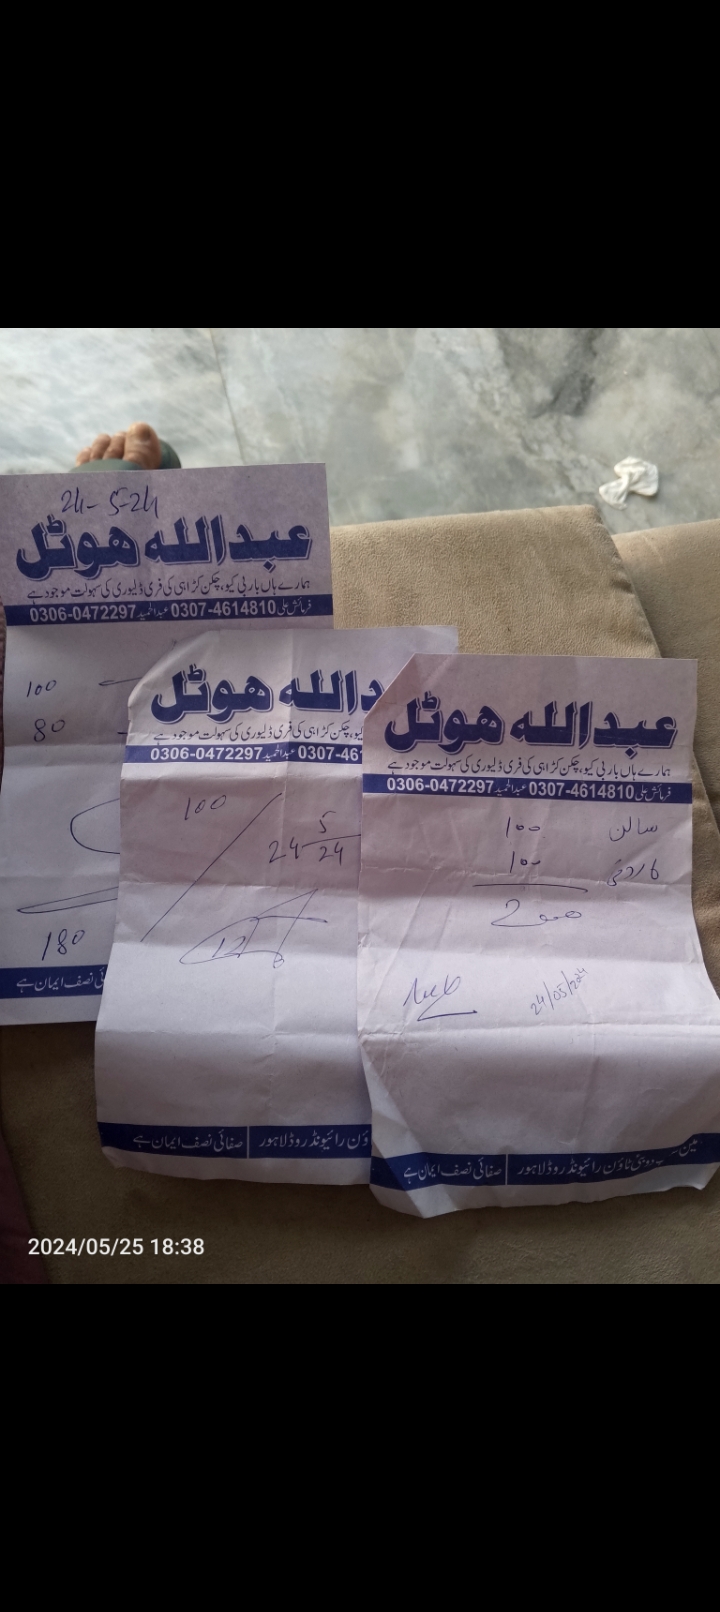 24-5-24
عبدالله هوٹل
ہمارے ہاں باربی کیو، چکن کڑاہی کی فری ڈلیوری کی سہولت موجود ہے
فرمائش علی 0307-4614810 عبدالحمید 0306-0472297
100
80
180
ئی نصف ایمان ہے
دالله هوٹل
کیو، چکن کڑاہی کی فری ڈلیوری کی سہولت موجود ہے
0307-461 عبدالحمید 0306-0472297
100
24 5/24
ؤن رائیونڈ روڈ لاہور | صفائی نصف ایمان ہے
عبدالله هوٹل
ہمارے ہاں باربی کیو، چکن کڑاہی کی فری ڈلیوری کی سہولت موجود ہے
فرمائش علی 0307-4614810 عبدالحمید 0306-0472297
سالن 100
100
200
24/05/2024
ٹاؤن رائیونڈ روڈ لاہور | صفائی نصف ایمان ہے
2024/05/25 18:38